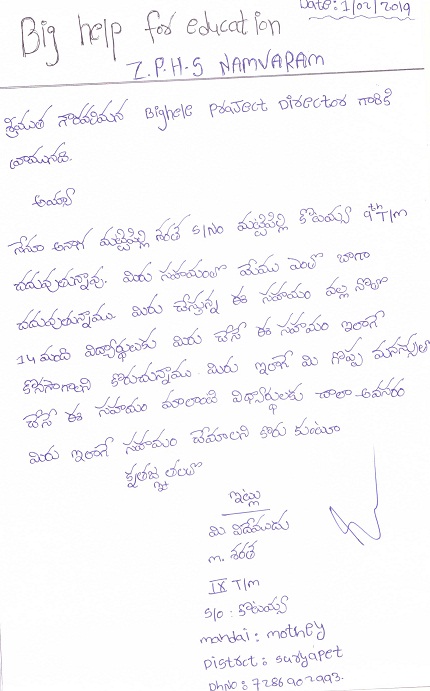 Date: 1/02/2019
Big help for education
Z.P.H.S NAMVARAM
శ్రీయుత గౌరవనీయులైన Bighele Project Director గారికి
వ్రాయునది.
అయ్యా
నేను అనగా మట్టిపెల్లి శరత్ S/No మట్టిపెల్లి కొటయ్య 9th T/m
చదువుతున్నావు. మిరు సహయంతో మేము ఎంతో బాగా
చదువుతున్నాము. మిరు చేస్తున్న ఈ సహయం వల్ల
14 మంది విద్యార్థులకు మిరు చేసే ఈ సహయం ఇలాగే
కొనసాగాలని కొరుచున్నాము. మిరు ఇలాగే మి గొప్ప మనస్సులో
చేసే ఈ సహయం మాలాంటి విధ్యార్థులకు చాలా అవసరం
మిరు ఇలాగే సహయం చేయాలని కొరు కుంటూ
కృతజ్ఞతలతో
ఇట్లు
మి విదేయుడు
m. శరత్
IX T/m
S/o : కొటయ్య
mandal : mothey
District : suryapet
PhNo : 7286902993.